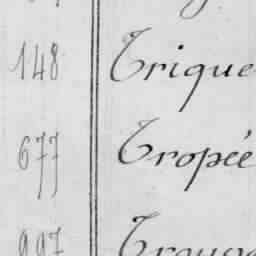 148 Trique
677 Tropée
997